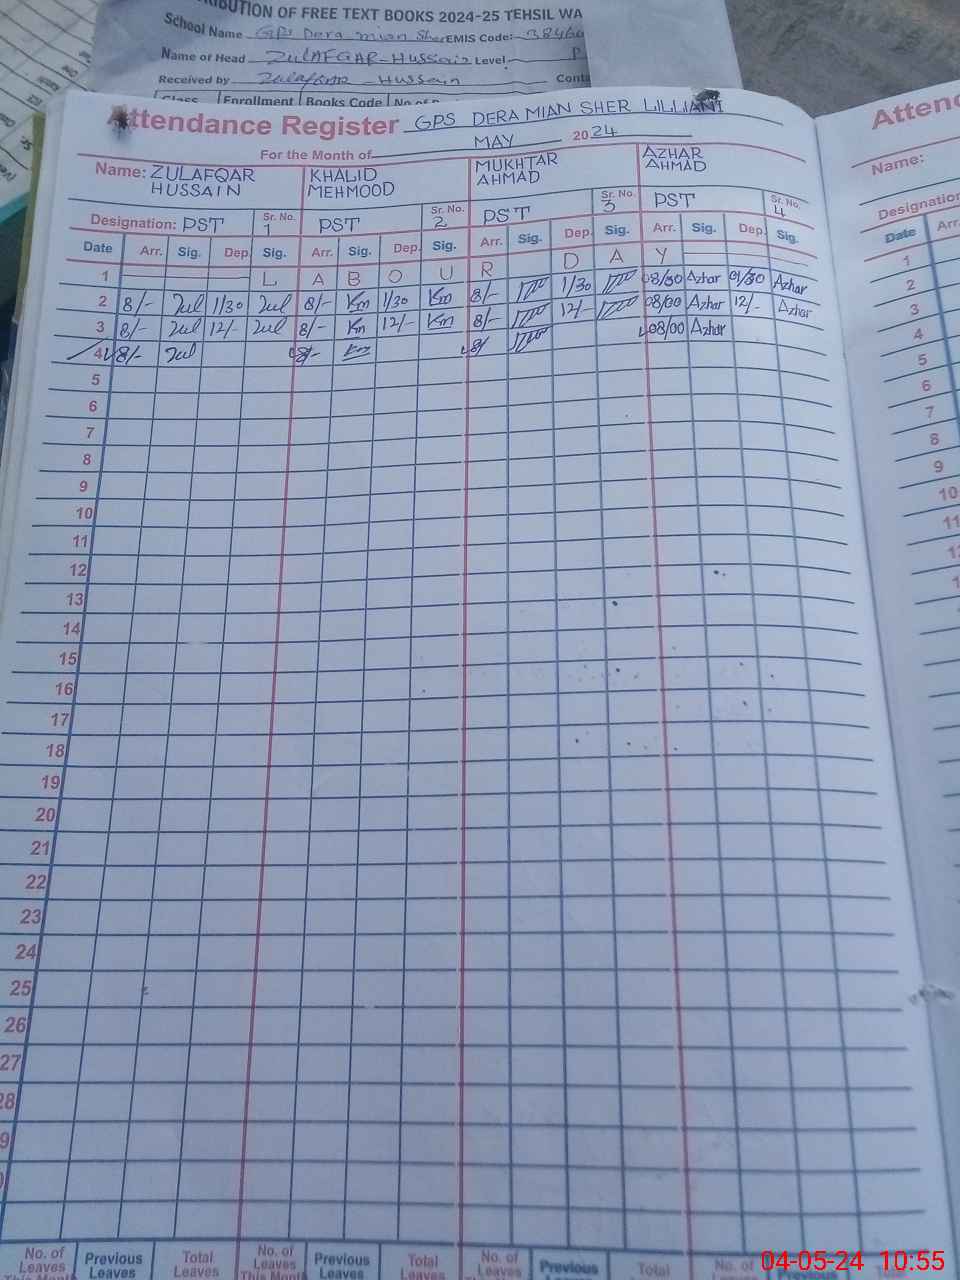 BUTION OF FREE TEXT BOOKS 2024-25 TEHSIL WA
School Name GPS Dera mian Sher EMIS Code: 38460
Name or Head ZulAFGAR-Hussain Level P
Received by Zulafqar-Hussain Conta
Class Enrollment Books Code No of
Attendance Register GPS DERA MIAN SHER LILLIANI
For the Month of MAY 2024
Name: ZULAFQAR HUSSAIN KHALID MEHMOOD MUKHTAR AHMAD AZHAR AHMAD
Designation: PST Sr. No. 1 PST Sr. No. 2 PST Sr. No. 3 PST Sr. No. 4
Date Arr. Sig. Dep. Sig. Arr. Sig. Dep. Sig. Arr. Sig. Dep. Sig. Arr. Sig. Dep. Sig.
1 L A B O U R D A Y
2 8/- Zul 1/30 Zul 8/- Km 1/30 Km 8/- 1/30 08/30 Azhar 01/30 Azhar
3 8/- Zul 12/- Zul 8/- Km 12/- Km 8/- 12/- 08/00 Azhar 12/- Azhar
4 8/- Zul 8/- Km 8/ 08/00 Azhar
5
6
7
8
9
10
11
12
13
14
15
16
17
18
19
20
21
22
23
24
25
26
27
28
9
No. of Leaves This Month Previous Leaves Total Leaves No. of Leaves This Month Previous Leaves Total Leaves No. of Leaves Previous Leaves Total No. of
Attend
Name:
Designation
Date Arr.
1
2
3
4
5
6
7
8
9
10
11
04-05-24 10:55